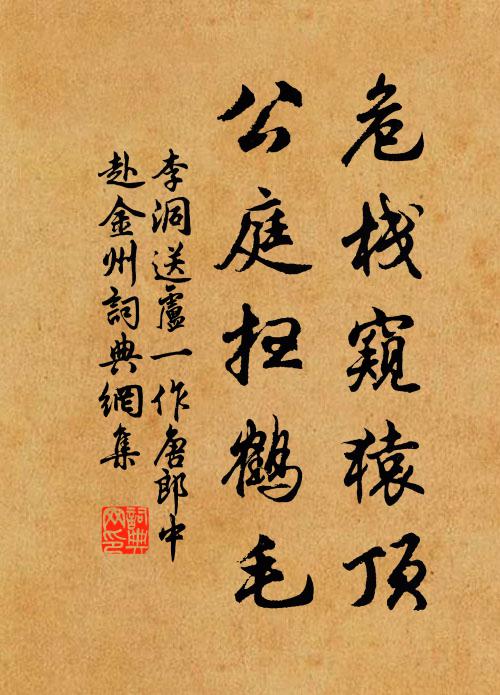 危栈窺猿顶
公庭扫鶴毛
李洞送盧一作詹郎中
赴金州詞典網集
詞典網印